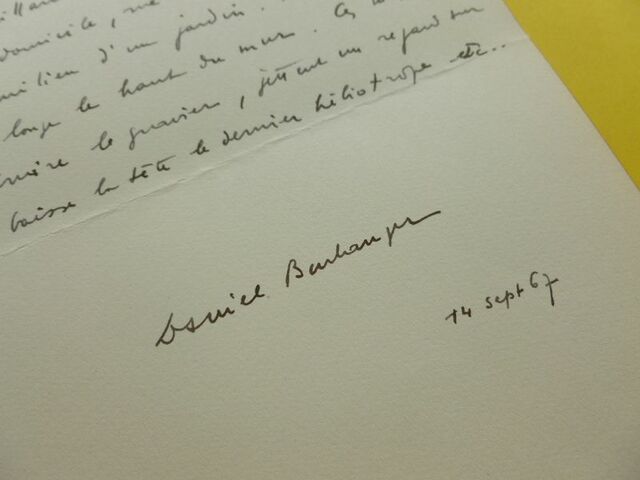 domicile, me
milieu d'un jardin.
longe le haut du mur. Ces
le gravier, jettent un regard sur
baisse la tête le dernier héliotrope etc..
Daniel Boulanger
14 sept 67